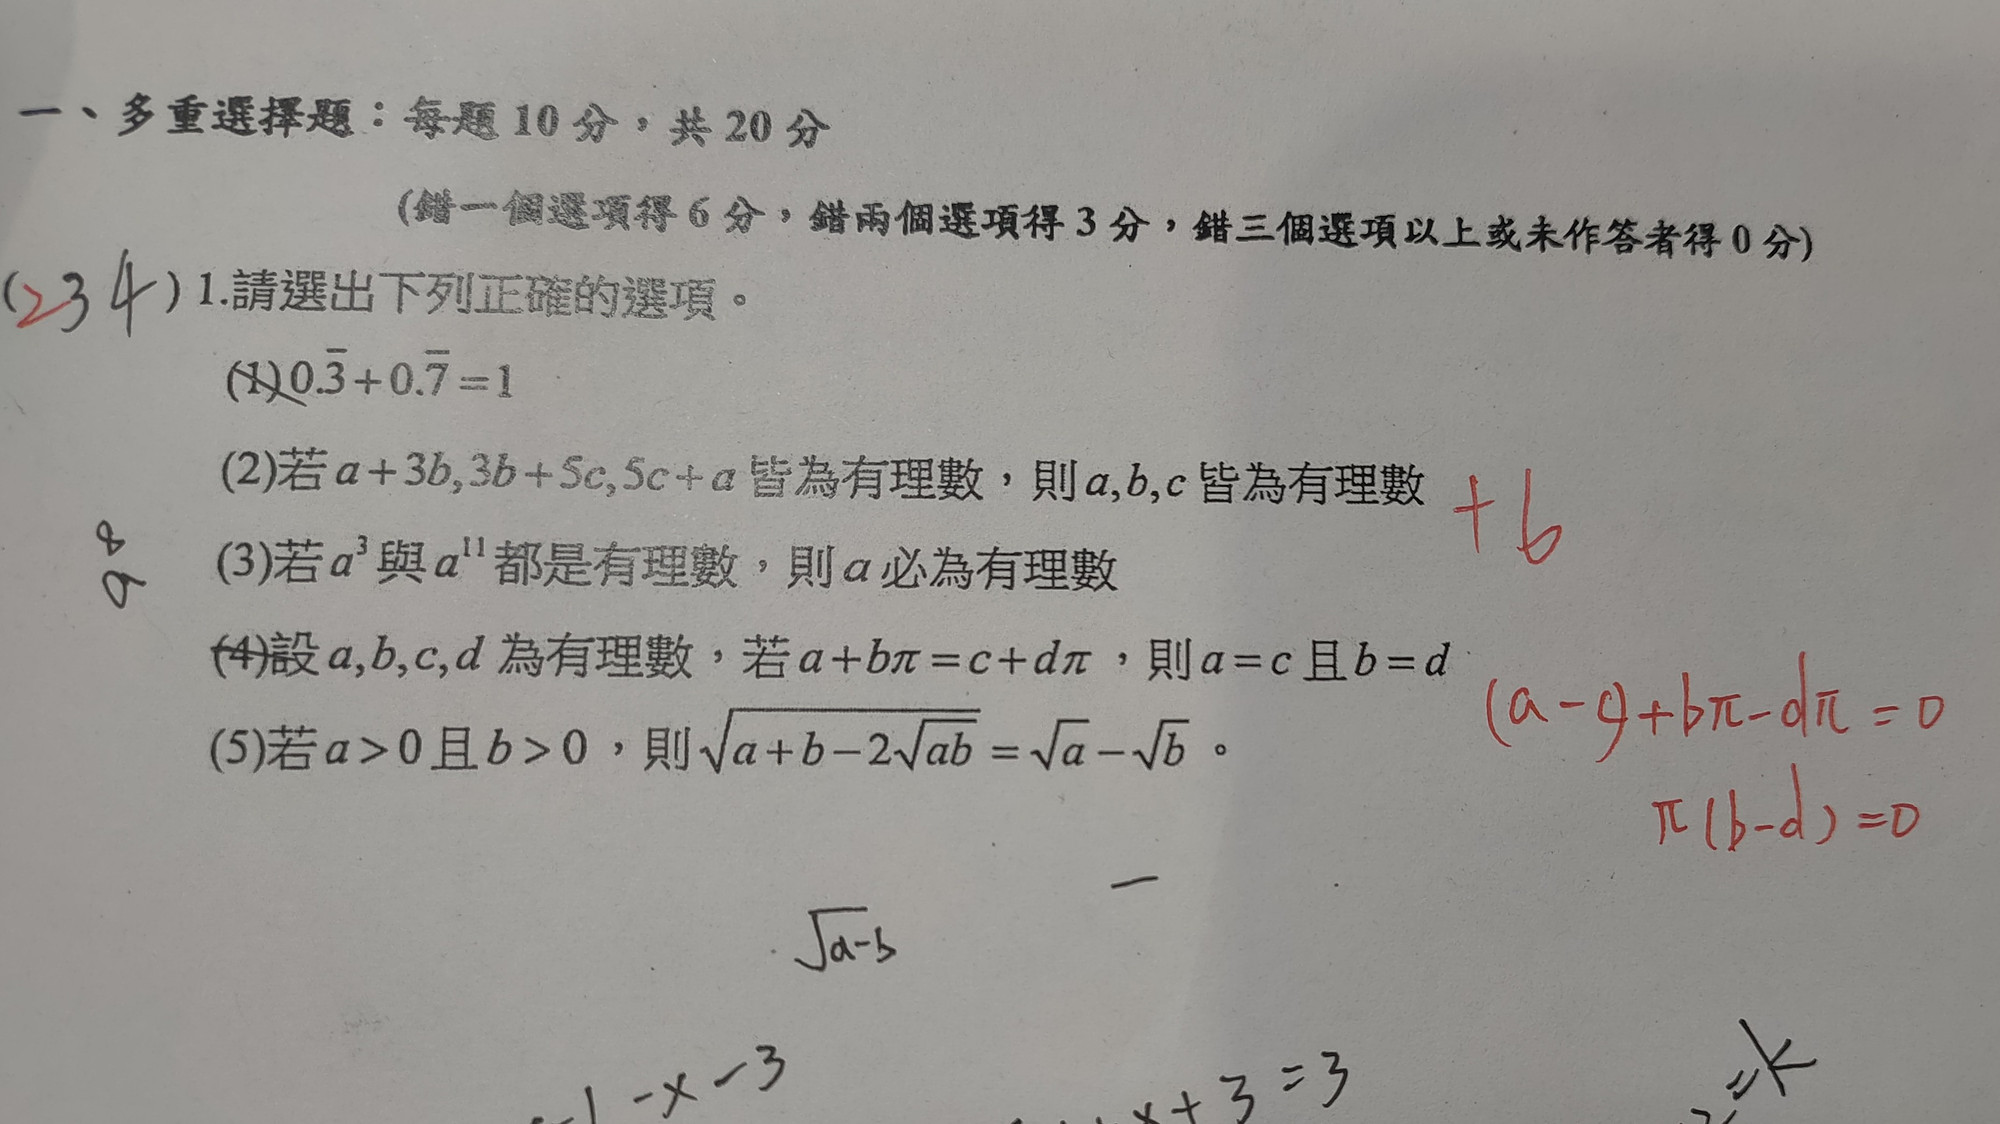 一、多重選擇題：每題 10 分，共 20 分
(錯一個選項得 6 分，錯兩個選項得 3 分，錯三個選項以上或未作答者得 0 分)
(234) 1.請選出下列正確的選項。
(1) 0.3̅ + 0.7̅ = 1
(2)若 a+3b, 3b+5c, 5c+a 皆為有理數，則 a,b,c 皆為有理數
+b
(3)若 a³ 與 a¹¹ 都是有理數，則 a 必為有理數
a8
(4)設 a,b,c,d 為有理數，若 a+bπ=c+dπ，則 a=c 且 b=d
(a-c)+bπ-dπ=0
(5)若 a>0 且 b>0，則 √(a+b-2√(ab)) = √a-√b。
π(b-d)=0
√a-b
-x-3
x+3=3